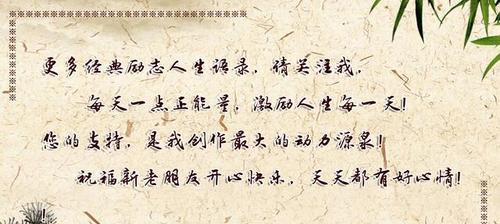 更多经典励志人生语录，请关注我，
每天一点正能量，激励人生每一天！
您的支持，是我创作最大的动力源泉！
祝福新老朋友开心快乐，天天都有好心情！